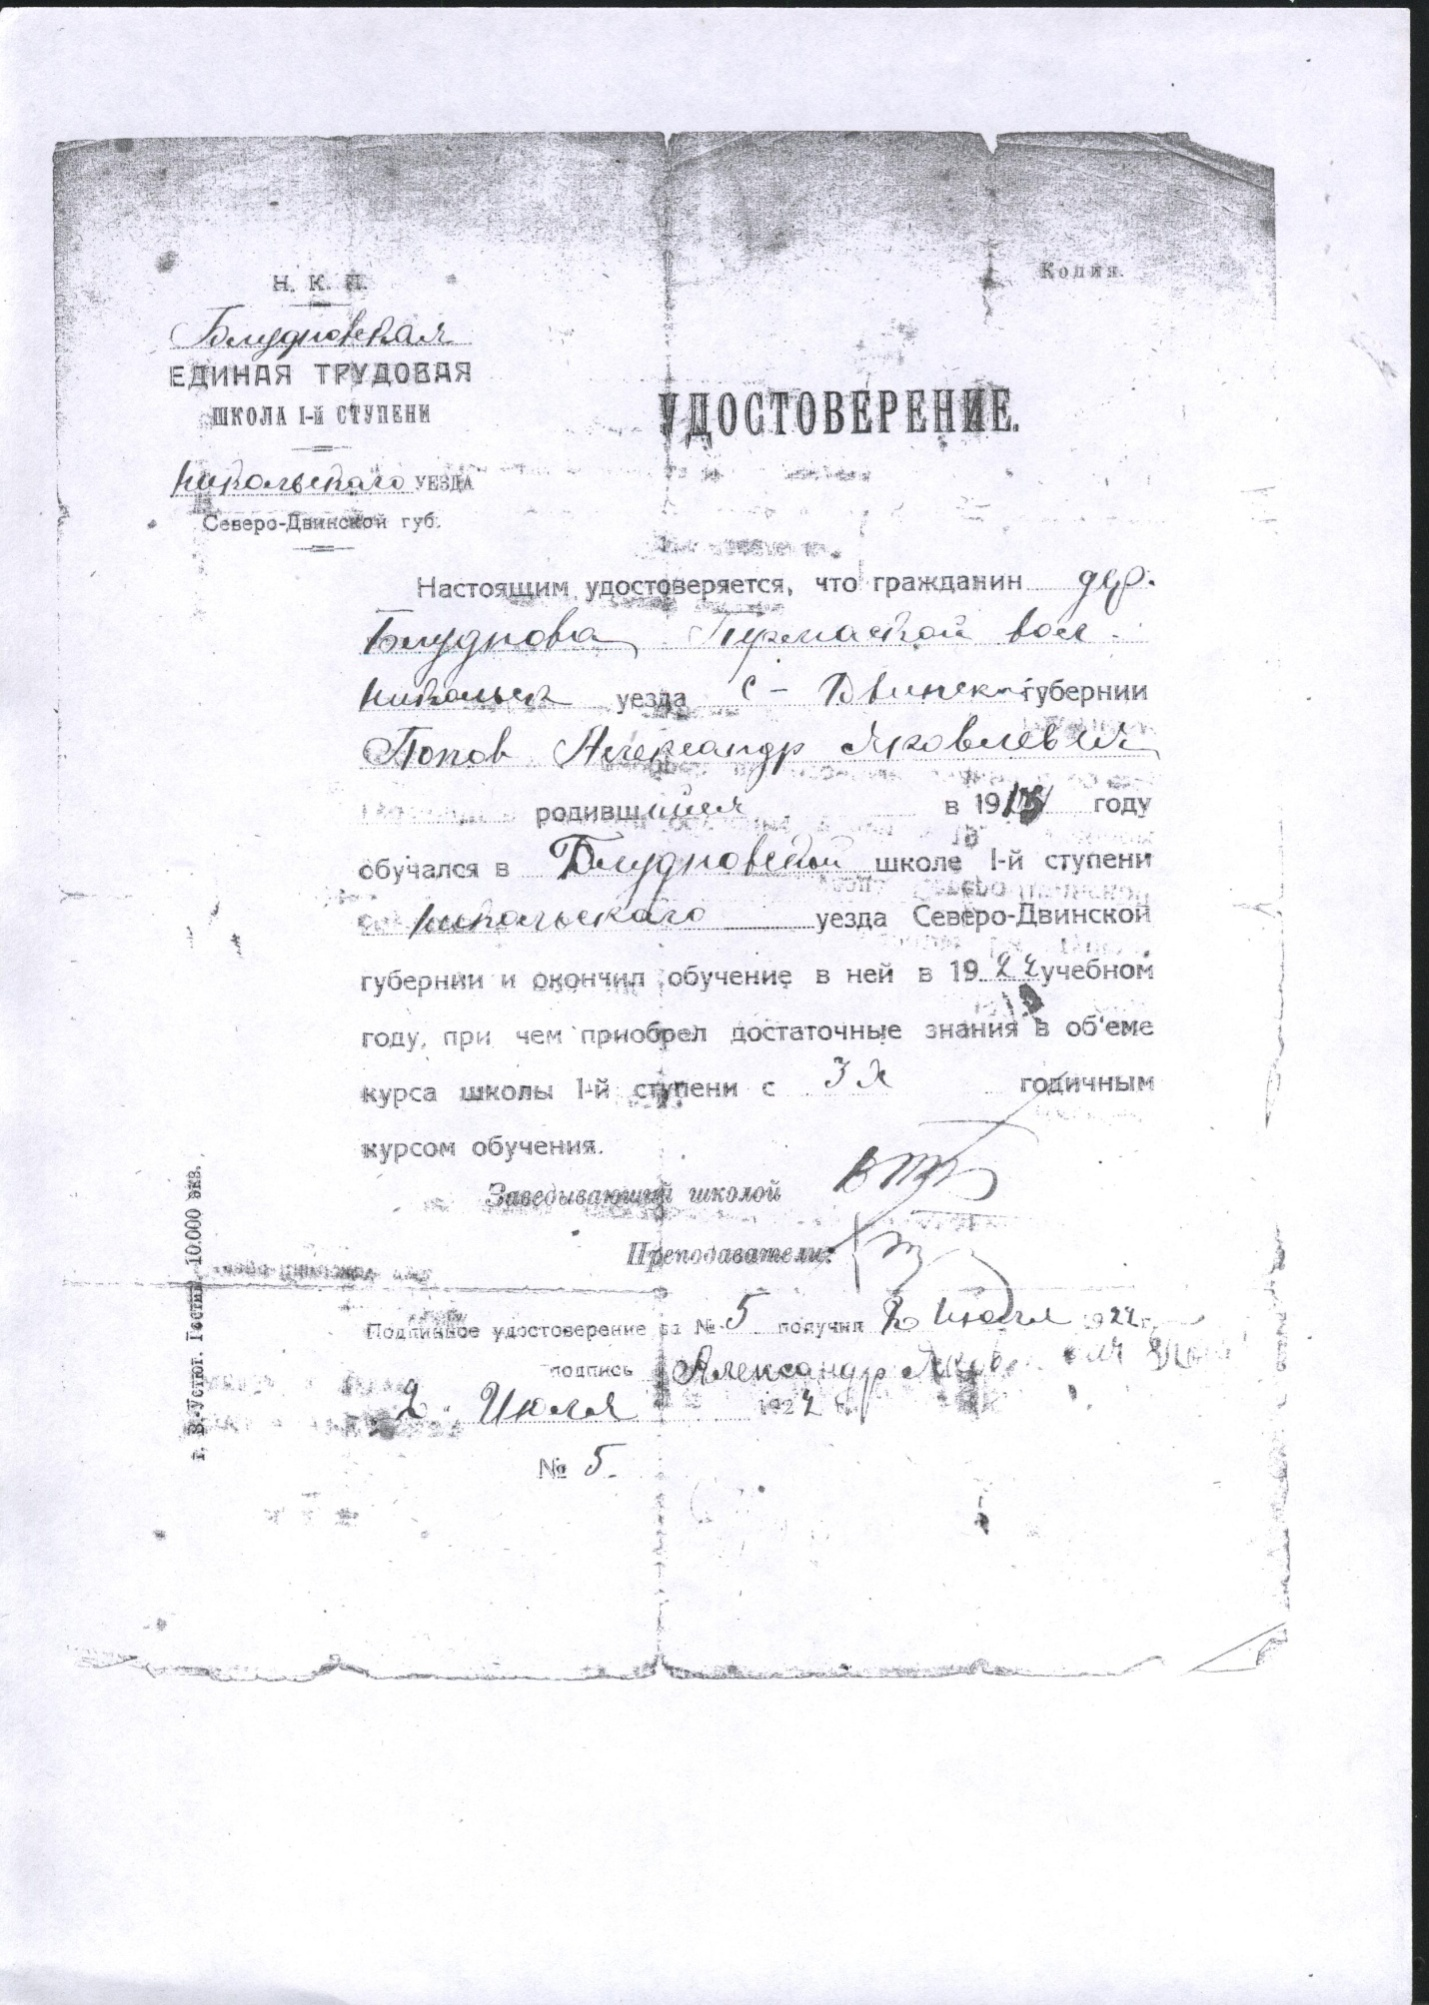 Н. К. П.
Копия.
Блудновская
ЕДИНАЯ ТРУДОВАЯ
ШКОЛА I-й СТУПЕНИ
УДОСТОВЕРЕНИЕ.
Никольского УЕЗДА
Северо-Двинской губ.
Настоящим удостоверяется, что гражданин дер.
Блуднова Пермаской вол.
Никольск уезда С-Двинск губернии
Попов Александр Яковлевич
родившийся в 19 году
обучался в Блудновской школе I-й ступени
Никольского уезда Северо-Двинской
губернии и окончил обучение в ней в 19 учебном
году, при чем приобрел достаточные знания в об'еме
курса школы I-й ступени с 3х годичным
курсом обучения.
Заведывающий школой
Преподаватели:
Подлинное удостоверение за № 5 получил 2 Июля г.
подпись Александр
2 Июля
№ 5.
г. В.-Устюг. 10.000 экз.